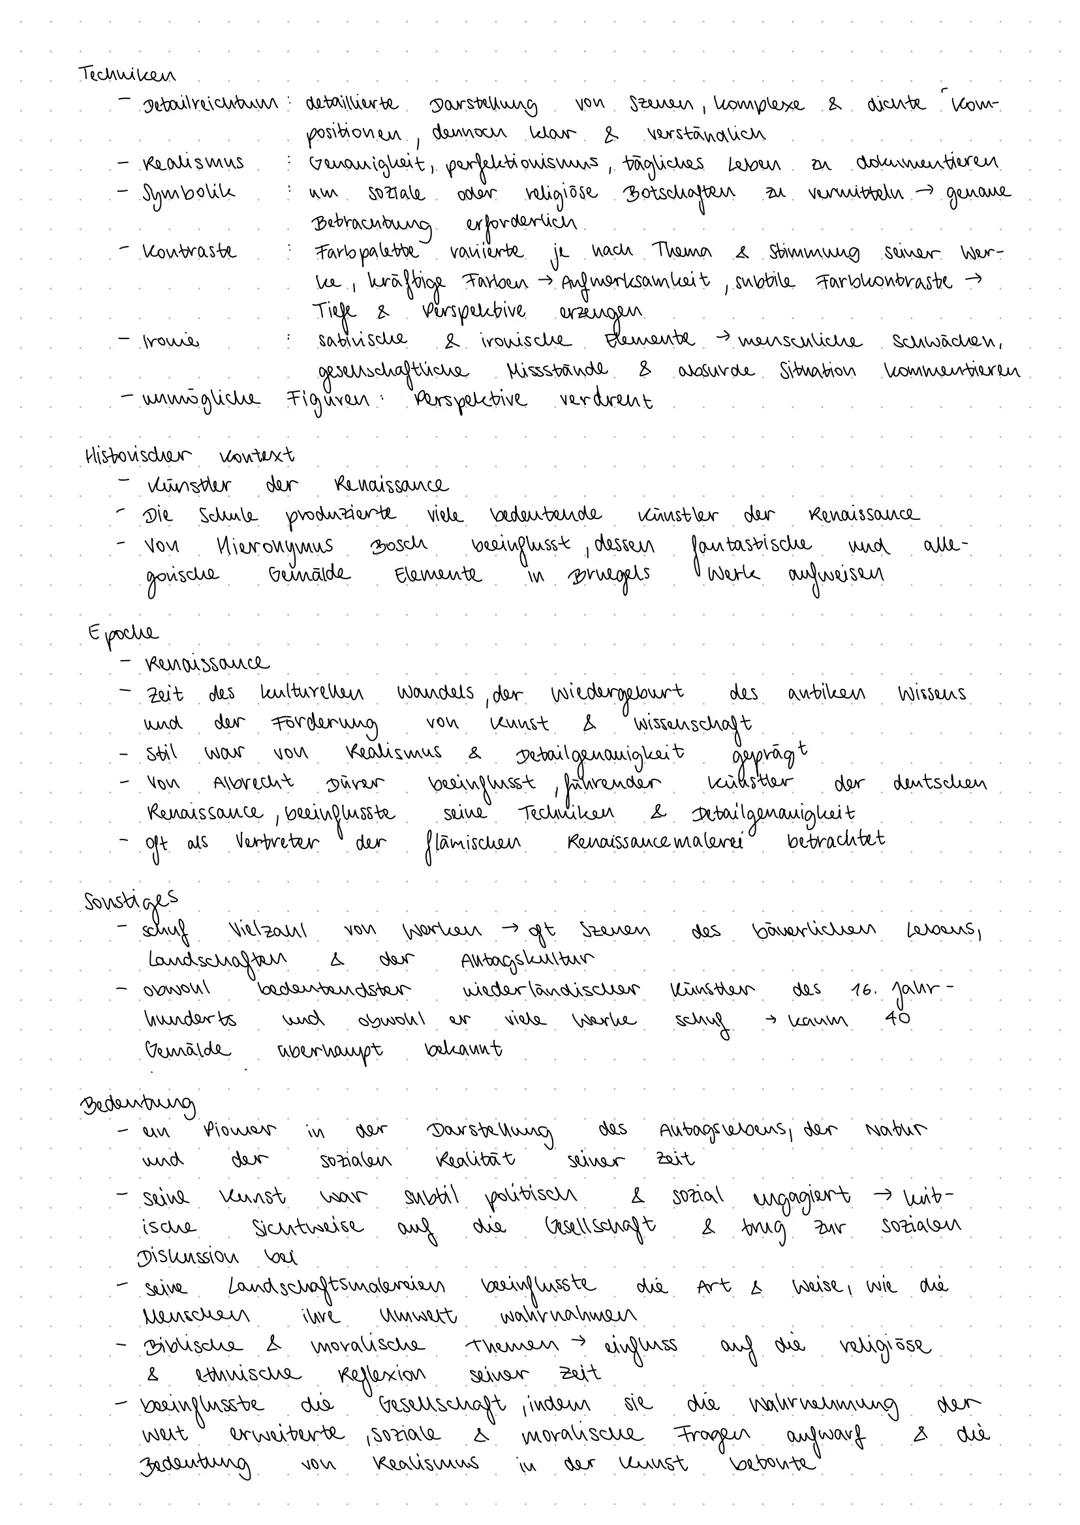 Techniken
- Detailreichtum : detaillierte Darstellung von Szenen, komplexe & dichte Kom-
positionen, dennoch klar & verständlich
- Realismus : Genauigkeit, perfektionismus, tägliches Leben zu dokumentieren
- Symbolik : um soziale oder religiöse Botschaften zu vermitteln → genaue
Betrachtung erforderlich
- Kontraste : Farbpalette variierte je nach Thema & Stimmung seiner Wer-
ke, kräftige Farben → Aufmerksamkeit, subtile Farbkontraste →
Tiefe & Perspektive erzeugen
- Ironie : satirische & ironische Elemente → menschliche Schwächen,
gesellschaftliche Missstände & absurde Situation kommentieren
- unmögliche Figuren : Perspektive verdreht
Historischer Kontext
- Künstler der Renaissance
- Die Schule produzierte viele bedeutende Künstler der Renaissance
- von Hieronymus Bosch beeinflusst, dessen fantastische und alle-
gorische Gemälde Elemente in Bruegels Werk aufweisen
Epoche
- Renaissance
- Zeit des kulturellen Wandels, der Wiedergeburt des antiken Wissens
und der Förderung von Kunst & Wissenschaft
- Stil war von Realismus & Detailgenauigkeit geprägt
- Von Albrecht Dürer beeinflusst, führender Künstler der deutschen
Renaissance, beeinflusste seine Techniken & Detailgenauigkeit
- oft als Vertreter der flämischen Renaissancemalerei betrachtet
Sonstiges
- schuf Vielzahl von Werken → oft Szenen des bäuerlichen Lebens,
Landschaften & der Alltagskultur
- obwohl bedeutendster niederländischer Künstler des 16. Jahr-
hunderts und obwohl er viele Werke schuf → kaum 40
Gemälde überhaupt bekannt
Bedeutung
- ein Pionier in der Darstellung des Alltagslebens, der Natur
und der sozialen Realität seiner Zeit
- seine Kunst war subtil politisch & sozial engagiert → krit-
ische Sichtweise auf die Gesellschaft & trug zur sozialen
Diskussion bei
- seine Landschaftsmalereien beeinflusste die Art & Weise, wie die
Menschen ihre Umwelt wahrnahmen
- Biblische & moralische Themen → einfluss auf die religiöse
& ethnische Reflexion seiner Zeit
- beeinflusste die Gesellschaft, indem sie die Wahrnehmung der
Welt erweiterte, soziale & moralische Fragen aufwarf & die
Bedeutung von Realismus in der Kunst betonte